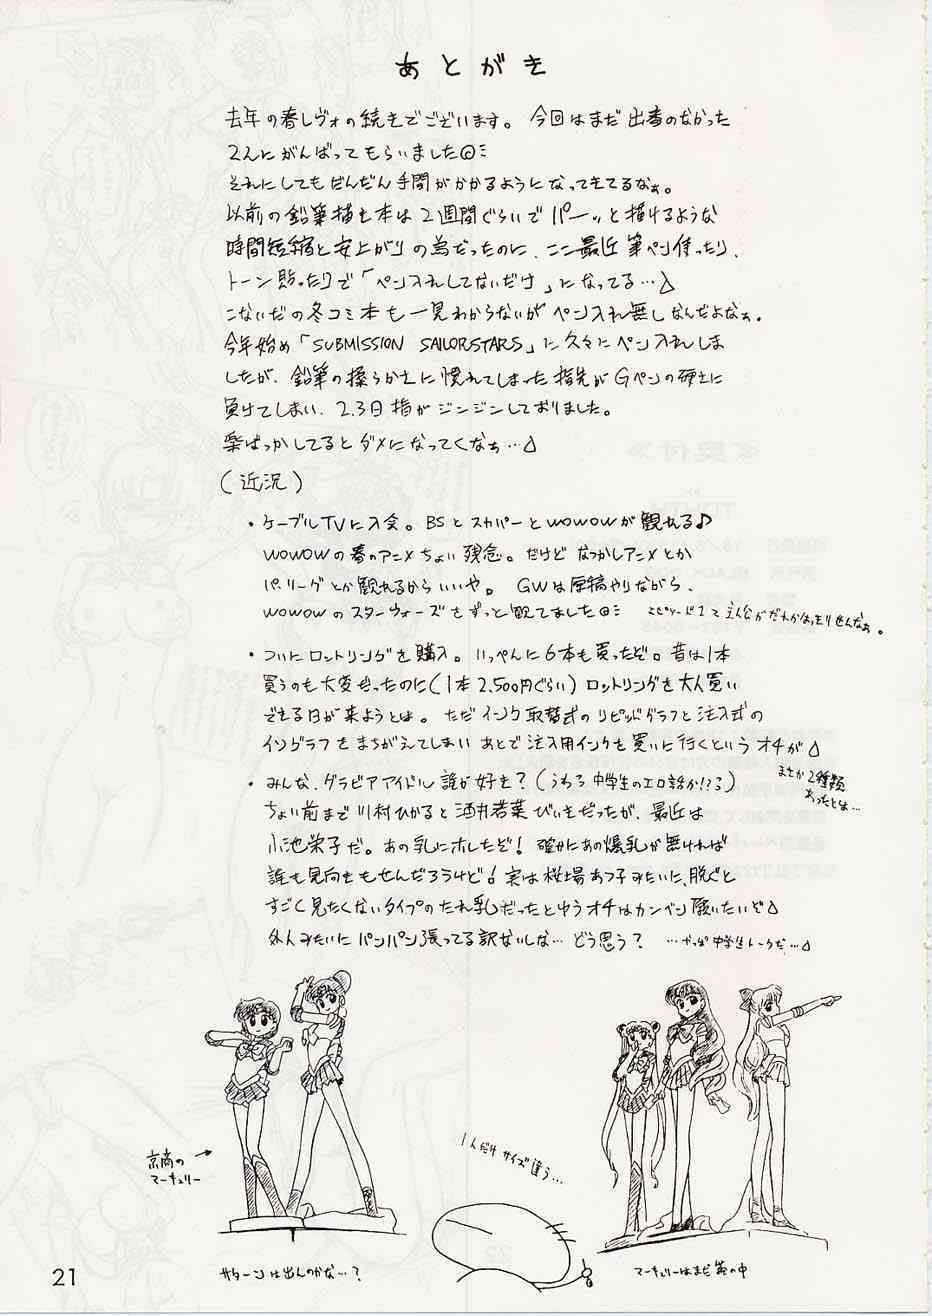 あとがき
去年の春レヴォの続きでございます。今回はまだ出番のなかった
2人にがんばってもらいました
それにしてもだんだん手間がかかるようになってきてるなぁ。
以前の鉛筆描き本は2週間ぐらいでパーッと描けるような
時間短縮と安上がりの為だったのに、ここ最近筆ペン使ったり、
トーン貼ったりで「ペン入れしてないだけ」になってる…
こないだの冬コミ本も一見わからないがペン入れ無しなんだよなぁ。
今年始め「SUBMISSION SAILORSTARS」に久々にペン入れしま
したが、鉛筆の柔らかさに慣れてしまった指先がGペンの硬さに
負けてしまい、2,3日指がジンジンしておりました。
楽ばっかしてるとダメになってくなぁ…
(近況)
・ケーブルTVに入会。BSとスカパーとWOWOWが観れる♪
WOWOWの春のアニメちょい残念。だけどなつかしアニメとか
パ・リーグとか観れるからいいや。GWは原稿やりながら、
WOWOWのスターウォーズをずっと観てました
エピソード1って主人公がだれかはっきりせんなぁ。
・ついにロットリングを購入。いっぺんに6本も買ったぞ。昔は1本
買うのも大変だったのに(1本2,500円ぐらい)ロットリングを大人買い
できる日が来ようとは。ただインク取替式のラピッドグラフと注入式の
イソグラフをまちがえてしまいあとで注入用インクを買いに行くというオチが
まさか2種類
あったとは…
・みんな、グラビアアイドル誰が好き?(うわっ中学生のエロ話か!?)
ちょい前まで川村ひかると酒井若菜びいきだったが、最近は
小池栄子だ。あの乳にホレたぞ!確かにあの爆乳が無ければ
誰も見向きもせんだろうけど!実は桜場あつ子みたいに、脱ぐと
すごく見たくないタイプのたれ乳だったとゆうオチはカンベン願いたいぞ
外人みたいにパンパン張ってる訳ないしな…どう思う?
…やっぱ中学生トークだ…
京商の
マーキュリー
1人だけサイズ違う…
サターンは出んのかな…?
マーキュリーはまだ箱の中
21